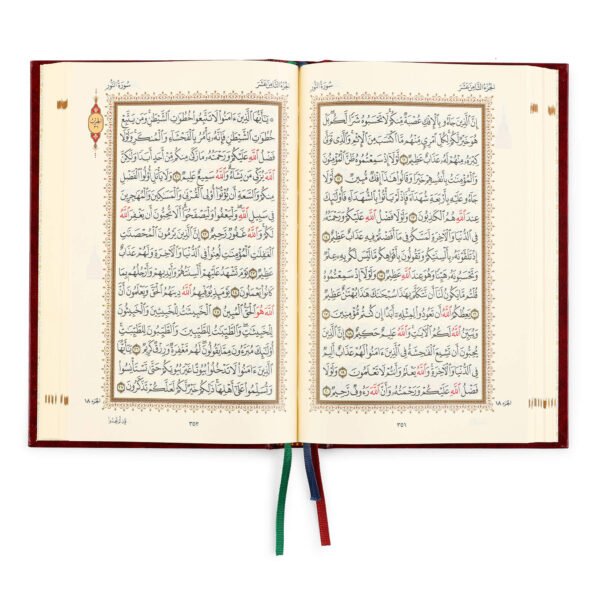 الجزء الثامن عشر
سورة النور
إِنَّ الَّذِينَ جَاءُو بِالْإِفْكِ عُصْبَةٌ مِّنكُمْ لَا تَحْسَبُوهُ شَرًّا لَّكُم بَلْ
هُوَ خَيْرٌ لَّكُمْ لِكُلِّ امْرِئٍ مِّنْهُم مَّا اكْتَسَبَ مِنَ الْإِثْمِ وَالَّذِي تَوَلَّىٰ
كِبْرَهُ مِنْهُمْ لَهُ عَذَابٌ عَظِيمٌ ١١ لَّوْلَا إِذْ سَمِعْتُمُوهُ ظَنَّ الْمُؤْمِنُونَ
وَالْمُؤْمِنَاتُ بِأَنفُسِهِمْ خَيْرًا وَقَالُوا هَٰذَا إِفْكٌ مُّبِينٌ ١٢ لَّوْلَا
جَاءُو عَلَيْهِ بِأَرْبَعَةِ شُهَدَاءَ فَإِذْ لَمْ يَأْتُوا بِالشُّهَدَاءِ فَأُولَٰئِكَ
عِندَ اللَّهِ هُمُ الْكَاذِبُونَ ١٣ وَلَوْلَا فَضْلُ اللَّهِ عَلَيْكُمْ وَرَحْمَتُهُ
فِي الدُّنْيَا وَالْآخِرَةِ لَمَسَّكُمْ فِي مَا أَفَضْتُمْ فِيهِ عَذَابٌ عَظِيمٌ ١٤
إِذْ تَلَقَّوْنَهُ بِأَلْسِنَتِكُمْ وَتَقُولُونَ بِأَفْوَاهِكُم مَّا لَيْسَ لَكُم بِهِ عِلْمٌ
وَتَحْسَبُونَهُ هَيِّنًا وَهُوَ عِندَ اللَّهِ عَظِيمٌ ١٥ وَلَوْلَا إِذْ سَمِعْتُمُوهُ
قُلْتُم مَّا يَكُونُ لَنَا أَن نَّتَكَلَّمَ بِهَٰذَا سُبْحَانَكَ هَٰذَا بُهْتَانٌ عَظِيمٌ
١٦ يَعِظُكُمُ اللَّهُ أَن تَعُودُوا لِمِثْلِهِ أَبَدًا إِن كُنتُم مُّؤْمِنِينَ ١٧
وَيُبَيِّنُ اللَّهُ لَكُمُ الْآيَاتِ وَاللَّهُ عَلِيمٌ حَكِيمٌ ١٨ إِنَّ الَّذِينَ
يُحِبُّونَ أَن تَشِيعَ الْفَاحِشَةُ فِي الَّذِينَ آمَنُوا لَهُمْ عَذَابٌ أَلِيمٌ
فِي الدُّنْيَا وَالْآخِرَةِ وَاللَّهُ يَعْلَمُ وَأَنتُمْ لَا تَعْلَمُونَ ١٩ وَلَوْلَا
فَضْلُ اللَّهِ عَلَيْكُمْ وَرَحْمَتُهُ وَأَنَّ اللَّهَ رَءُوفٌ رَّحِيمٌ ٢٠
الجزء ١٨
٣٥١
الجزء الثامن عشر
سورة النور
يَا أَيُّهَا الَّذِينَ آمَنُوا لَا تَتَّبِعُوا خُطُوَاتِ الشَّيْطَانِ وَمَن يَتَّبِعْ
خُطُوَاتِ الشَّيْطَانِ فَإِنَّهُ يَأْمُرُ بِالْفَحْشَاءِ وَالْمُنكَرِ وَلَوْلَا
فَضْلُ اللَّهِ عَلَيْكُمْ وَرَحْمَتُهُ مَا زَكَىٰ مِنكُم مِّنْ أَحَدٍ أَبَدًا وَلَٰكِنَّ
اللَّهَ يُزَكِّي مَن يَشَاءُ وَاللَّهُ سَمِيعٌ عَلِيمٌ ٢١ وَلَا يَأْتَلِ أُولُو الْفَضْلِ
مِنكُمْ وَالسَّعَةِ أَن يُؤْتُوا أُولِي الْقُرْبَىٰ وَالْمَسَاكِينَ وَالْمُهَاجِرِينَ
فِي سَبِيلِ اللَّهِ وَلْيَعْفُوا وَلْيَصْفَحُوا أَلَا تُحِبُّونَ أَن يَغْفِرَ اللَّهُ
لَكُمْ وَاللَّهُ غَفُورٌ رَّحِيمٌ ٢٢ إِنَّ الَّذِينَ يَرْمُونَ الْمُحْصَنَاتِ
الْغَافِلَاتِ الْمُؤْمِنَاتِ لُعِنُوا فِي الدُّنْيَا وَالْآخِرَةِ وَلَهُمْ عَذَابٌ
عَظِيمٌ ٢٣ يَوْمَ تَشْهَدُ عَلَيْهِمْ أَلْسِنَتُهُمْ وَأَيْدِيهِمْ وَأَرْجُلُهُم بِمَا
كَانُوا يَعْمَلُونَ ٢٤ يَوْمَئِذٍ يُوَفِّيهِمُ اللَّهُ دِينَهُمُ الْحَقَّ وَيَعْلَمُونَ أَنَّ
اللَّهَ هُوَ الْحَقُّ الْمُبِينُ ٢٥ الْخَبِيثَاتُ لِلْخَبِيثِينَ وَالْخَبِيثُونَ
لِلْخَبِيثَاتِ وَالطَّيِّبَاتُ لِلطَّيِّبِينَ وَالطَّيِّبُونَ لِلطَّيِّبَاتِ
أُولَٰئِكَ مُبَرَّءُونَ مِمَّا يَقُولُونَ لَهُم مَّغْفِرَةٌ وَرِزْقٌ كَرِيمٌ ٢٦ يَا أَيُّهَا
الَّذِينَ آمَنُوا لَا تَدْخُلُوا بُيُوتًا غَيْرَ بُيُوتِكُمْ حَتَّىٰ تَسْتَأْنِسُوا
وَتُسَلِّمُوا عَلَىٰ أَهْلِهَا ذَٰلِكُمْ خَيْرٌ لَّكُمْ لَعَلَّكُمْ تَذَكَّرُونَ ٢٧
الجزء ١٨
٣٥٢